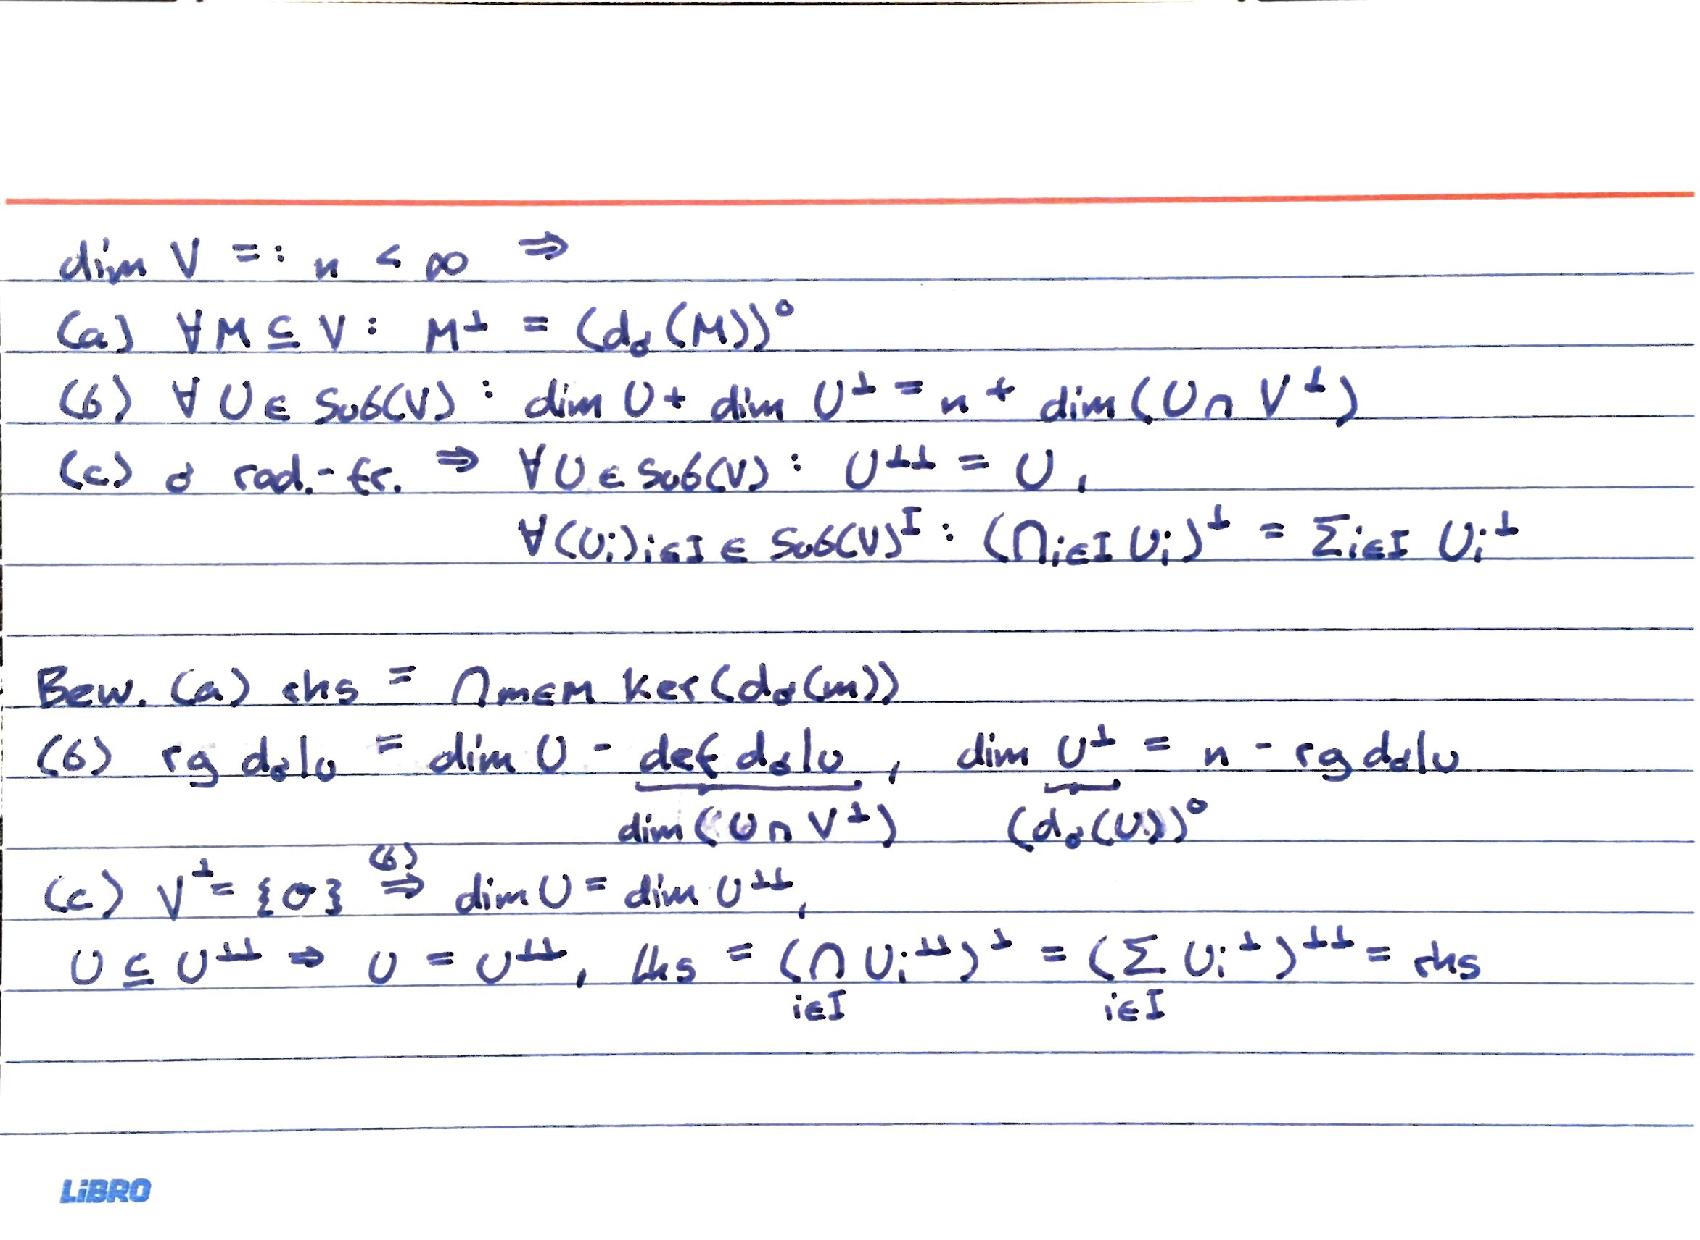 dim V =: n < ∞ ⇒
(a) ∀M ⊆ V: M^⊥ = (d_σ(M))°
(b) ∀U ∈ Sub(V): dim U + dim U^⊥ = n + dim(U ∩ V^⊥)
(c) σ rad.-fr. ⇒ ∀U ∈ Sub(V): U^⊥⊥ = U,
∀(U_i)_{i∈I} ∈ Sub(V)^I: (⋂_{i∈I} U_i)^⊥ = Σ_{i∈I} U_i^⊥
Bew. (a) rhs = ⋂_{m∈M} ker(d_σ(m))
(b) rg d_σ|_U = dim U - def d_σ|_U, dim U^⊥ = n - rg d_σ|_U
dim(U ∩ V^⊥) (d_σ(U))°
(c) V^⊥ = {σ} ⇒^{(b)} dim U = dim U^⊥⊥,
U ⊆ U^⊥⊥ ⇒ U = U^⊥⊥, lhs = (⋂_{i∈I} U_i^⊥⊥)^⊥ = (Σ_{i∈I} U_i^⊥)^⊥⊥ = rhs
LiBRO